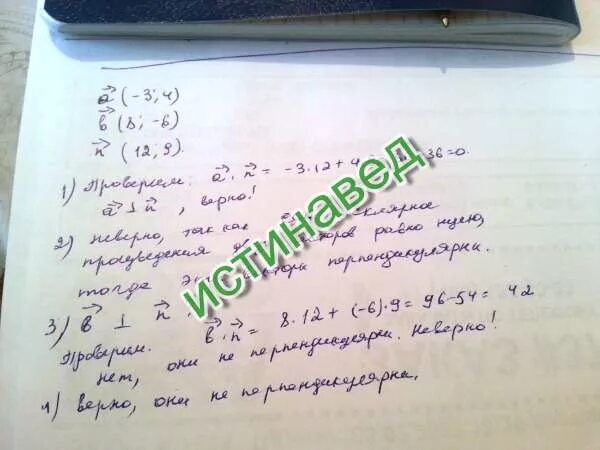 a⃗ (-3; 4)
b⃗ (8; -6)
n⃗ (12; 9).
1) Проверим: a⃗ · n⃗ = -3·12+4 36=0.
a⃗ ⊥ n⃗, верно!
2) неверно, так как скалярное
произведения равно нулю,
тогда перпендикулярны.
3) b⃗ ⊥ n⃗
Проверим. b⃗ · n⃗ = 8·12+(-6)·9=96-54=42
нет, они не перпендикулярны. Неверно!
4) верно, они не перпендикулярны.
ИСТИНАВЕД